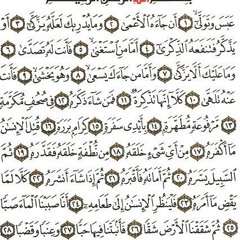 عَبَسَ وَتَوَلَّىٰٓ ١ أَن جَآءَهُ ٱلْأَعْمَىٰ ٢ وَمَا يُدْرِيكَ لَعَلَّهُۥ يَزَّكَّىٰٓ ٣ أَوْ
يَذَّكَّرُ فَتَنفَعَهُ ٱلذِّكْرَىٰٓ ٤ أَمَّا مَنِ ٱسْتَغْنَىٰ ٥ فَأَنتَ لَهُۥ تَصَدَّىٰ ٦
وَمَا عَلَيْكَ أَلَّا يَزَّكَّىٰ ٧ وَأَمَّا مَن جَآءَكَ يَسْعَىٰ ٨ وَهُوَ يَخْشَىٰ ٩ فَأَنتَ
عَنْهُ تَلَهَّىٰ ١٠ كَلَّآ إِنَّهَا تَذْكِرَةٌ ١١ فَمَن شَآءَ ذَكَرَهُۥ ١٢ فِى صُحُفٍ مُّكَرَّمَةٍ ١٣
مَّرْفُوعَةٍ مُّطَهَّرَةٍۭ ١٤ بِأَيْدِى سَفَرَةٍ ١٥ كِرَامٍۭ بَرَرَةٍ ١٦ قُتِلَ ٱلْإِنسَـٰنُ
مَآ أَكْفَرَهُۥ ١٧ مِنْ أَىِّ شَىْءٍ خَلَقَهُۥ ١٨ مِن نُّطْفَةٍ خَلَقَهُۥ فَقَدَّرَهُۥ ١٩ ثُمَّ
ٱلسَّبِيلَ يَسَّرَهُۥ ٢٠ ثُمَّ أَمَاتَهُۥ فَأَقْبَرَهُۥ ٢١ ثُمَّ إِذَا شَآءَ أَنشَرَهُۥ ٢٢ كَلَّا لَمَّا
يَقْضِ مَآ أَمَرَهُۥ ٢٣ فَلْيَنظُرِ ٱلْإِنسَـٰنُ إِلَىٰ طَعَامِهِۦٓ ٢٤ أَنَّا صَبَبْنَا ٱلْمَآءَ صَبًّا
٢٥ ثُمَّ شَقَقْنَا ٱلْأَرْضَ شَقًّا ٢٦ فَأَنۢبَتْنَا فِيهَا حَبًّا ٢٧ وَعِنَبًا وَقَضْبًا ٢٨